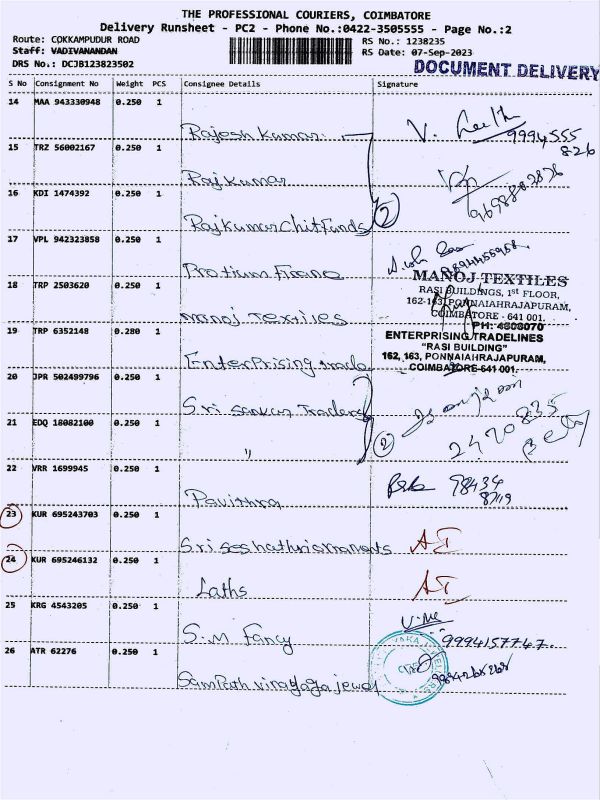 THE PROFESSIONAL COURIERS, COIMBATORE
Delivery Runsheet - PC2 - Phone No.:0422-3505555 - Page No.:2
Route: COKKAMPUDUR ROAD RS No.: 1238235
Staff: VADIVANANDAN RS Date: 07-Sep-2023
DRS No.: DCJB123823502 DOCUMENT DELIVERY
S No Consignment No Weight PCS Consignee Details Signature
14 MAA 943330948 0.250 1
Rajesh Kumar V. 9994555
826
15 TRZ 56002167 0.250 1
Rajkumar 9698802876
16 KDI 1474392 0.250 1
Rajkumar Chit Funds 2
17 VPL 942323858 0.250 1
MANOJ TEXTILES
RASI BUILDINGS, 1st FLOOR,
18 TRP 2503620 0.250 1
162-163, PONNAIAHRAJAPURAM,
COIMBATORE - 641 001.
Manoj Textiles
PH: 4308070
19 TRP 6352148 0.280 1
ENTERPRISING TRADELINES
"RASI BUILDING"
162, 163, PONNAIAHRAJAPURAM,
Enterprising trade COIMBATORE-641 001.
20 JPR 502499796 0.250 1
Sri Sankar Traders
21 EDQ 18082100 0.250 1
" 2 2470835
22 VRR 1699945 0.250 1
Pavithra 98434
23 KUR 695243703 0.250 1
24 KUR 695246132 0.250 1
Laths
25 KRG 4543205 0.250 1
S.M Fancy 9994157747
26 ATR 62276 0.250 1
Sampath vinayaga jewel 9894265268